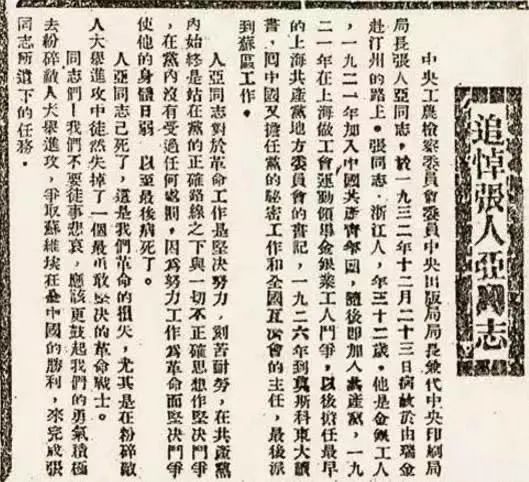 追悼張人亞同志
中央工農檢察委員會委員中央出版局局長兼代中央印刷局
局長張人亞同志,於一九三二年十二月二十三日病故於由瑞金
赴汀州的路上。張同志,浙江人,年三十二歲。他是金銀工人
,一九二一年加入中國共產青年團,隨後即加入共產黨,一九
二一年在上海做工會運動領導金銀業工人鬥爭,以後擔任最早
的上海共產黨地方委員會的書記,一九二六年到莫斯科東大讀
書,囘中國又擔任黨的秘密工作和全國互濟會的主任,最後派
到蘇區工作。
人亞同志對於革命工作是堅決努力,刻苦耐勞,在共產黨
內始終是站在黨的正確路線之下與一切不正確思想作堅決鬥爭
,在黨內沒有受過任何處罰,因爲努力工作爲革命而堅決鬥爭
使他的身體日弱 以至最後病死了。
人亞同志已死了,這是我們革命的損失,尤其是在粉碎敵
人大舉進攻中徒然失掉了一個最勇敢堅決的革命戰士。
同志們!我們不要徒事悲哀,應該更鼓起我們的勇氣積極
去粉碎敵人大舉進攻,爭取蘇維埃在全中國的勝利,來完成張
同志所遺下的任務。